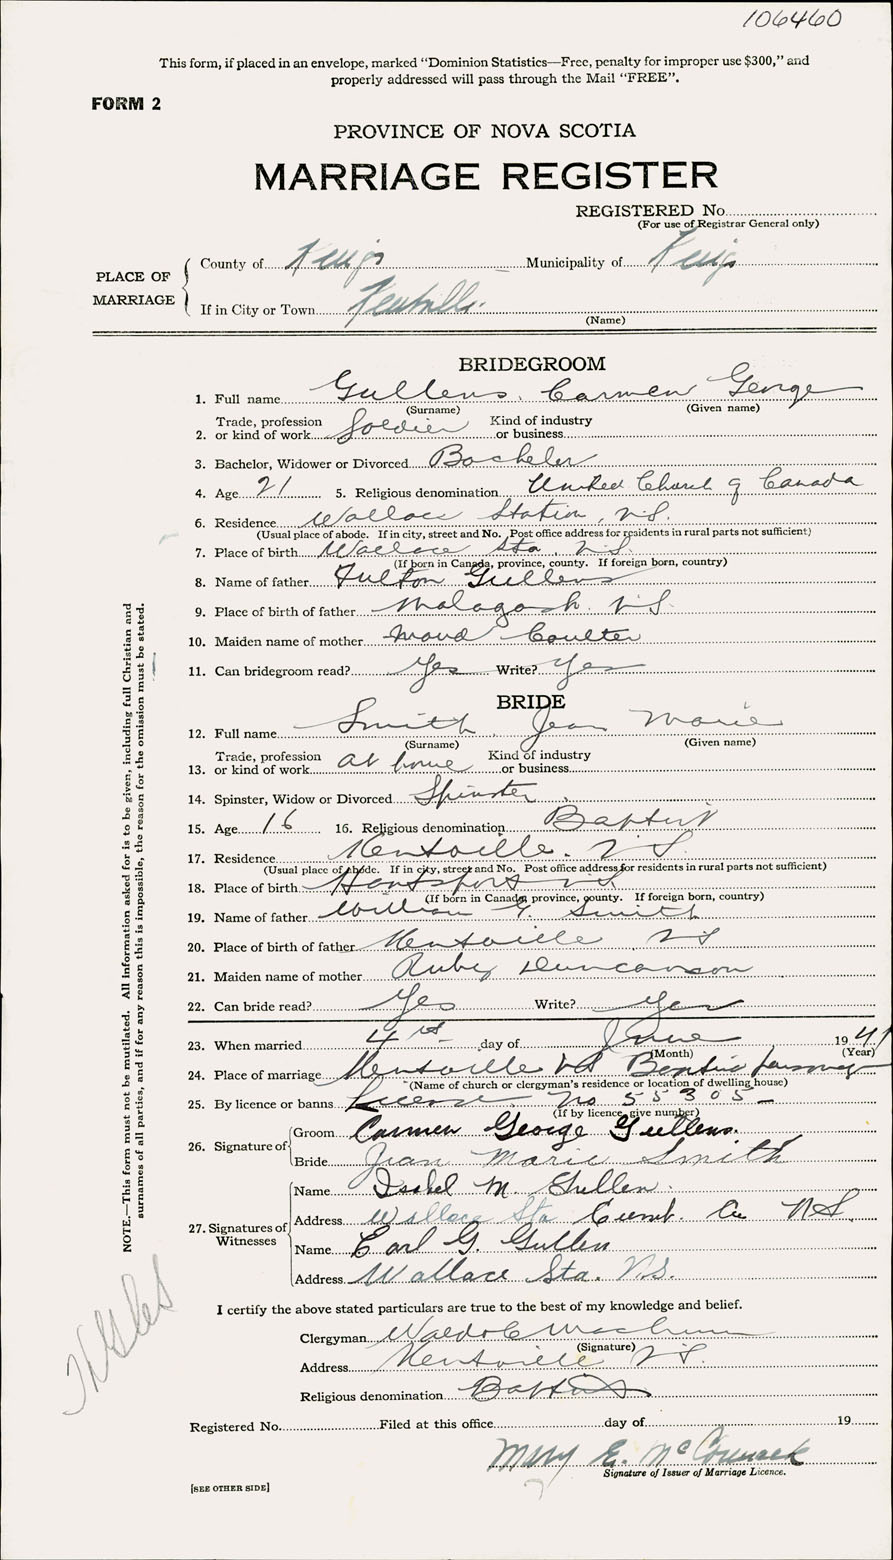 106460
This form, if placed in an envelope, marked "Dominion Statistics—Free, penalty for improper use $300," and
properly addressed will pass through the Mail "FREE".
FORM 2
PROVINCE OF NOVA SCOTIA
MARRIAGE REGISTER
REGISTERED No.
(For use of Registrar General only)
PLACE OF MARRIAGE
County of Kings Municipality of Kings
If in City or Town Kentville.
(Name)
BRIDEGROOM
1. Full name Gullens, Carmen George
(Surname) (Given name)
2. Trade, profession or kind of work Soldier Kind of industry or business
3. Bachelor, Widower or Divorced Bachelor
4. Age 21 5. Religious denomination United Church of Canada
6. Residence Wallace Station, N.S.
(Usual place of abode. If in city, street and No. Post office address for residents in rural parts not sufficient)
7. Place of birth Wallace Sta. N.S.
(If born in Canada, province, county. If foreign born, country)
8. Name of father Fulton Gullens
9. Place of birth of father Malagash N.S.
10. Maiden name of mother Maud Coulter
11. Can bridegroom read? Yes Write? Yes
BRIDE
12. Full name Smith, Jean Marie
(Surname) (Given name)
13. Trade, profession or kind of work at home Kind of industry or business
14. Spinster, Widow or Divorced Spinster
15. Age 16 16. Religious denomination Baptist
17. Residence Kentville. N.S.
(Usual place of abode. If in city, street and No. Post office address for residents in rural parts not sufficient)
18. Place of birth Hantsport N.S.
(If born in Canada, province, county. If foreign born, country)
19. Name of father William Smith
20. Place of birth of father Kentville NS
21. Maiden name of mother Ruby Duncanson
22. Can bride read? Yes Write? Yes
23. When married 4 day of June 1941
(Month) (Year)
24. Place of marriage Kentville NS Baptist Parsonage
(Name of church or clergyman's residence or location of dwelling house)
25. By licence or banns License No 55305-
(If by licence, give number)
26. Signature of
Groom Carmen George Gullens.
Bride Jean Marie Smith
27. Signatures of Witnesses
Name Isabel M. Gullen.
Address Wallace Sta Cumb. Co NS.
Name Earl G. Gullen
Address Wallace Sta. N.S.
I certify the above stated particulars are true to the best of my knowledge and belief.
Clergyman
(Signature)
Address Kentville N.S.
Religious denomination Baptist
Registered No. Filed at this office day of 19
Mary E. McCormack
Signature of Issuer of Marriage Licence.
[SEE OTHER SIDE]
NOTE.—This form must not be mutilated. All information asked for is to be given, including full Christian and
surnames of all parties, and if for any reason this is impossible, the reason for the omission must be stated.